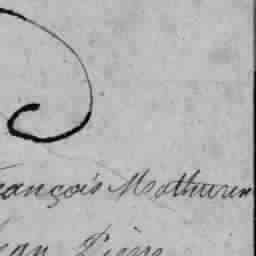 rançois Mathurin
ean Pierre